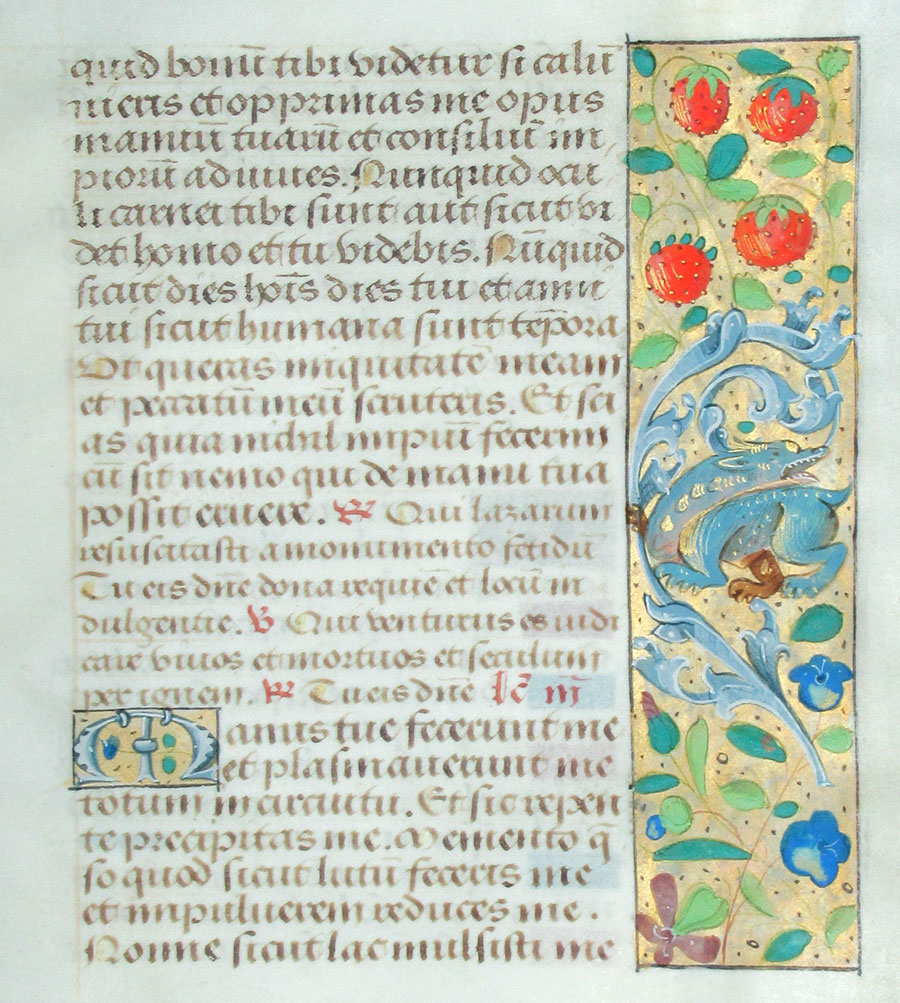 quid bonū tibi videtur si calū
nieris et opprimas me opus
manuū tuarū et consiliū im
piorū adiuues. Nunquid ocu
li carnei tibi sunt aut sicut vi
det homo et tu videbis. Nūquid
sicut dies hoīs dies tui et anni
tui sicut humana sunt tēpora
Ut queras iniquitatē meam
et peccatū meū scruteris. Et sci
as quia nichil impiū fecerim
cū sit nemo qui de manu tua
possit eruere. R Qui lazarum
resuscitasti a monumento fetidū
Tu eis dn̄e dona requiē et locū in
dulgentie. V Qui venturus es iudi
care vivos et mortuos et seculum
per ignem. R Tu eis dn̄e lē m̄
Manus tue fecerunt me
et plasmauerunt me
totum in circuitu. Et sic repen
te precipitas me. Memento q̄
so quod sicut lutū feceris me
et in puluerem reduces me.
Nonne sicut lac mulsisti me